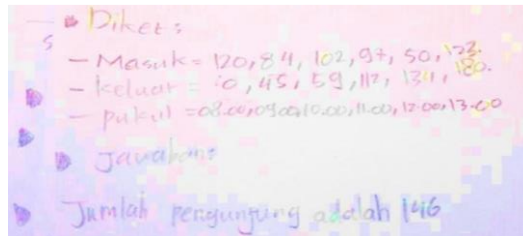 Diket :
- Masuk = 120, 84, 102, 97, 50, 123.
- Keluar = 0, 45, 59, 112, 134, 180.
- pukul = 08.00, 09.00, 10.00, 11.00, 12.00, 13.00
Jawaban:
Jumlah pengunjung adalah 146